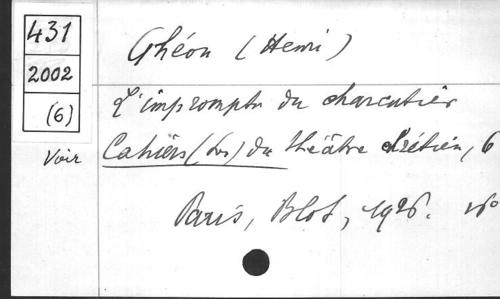 431
2002
(6)
Voir
Ghéon (Henri)
L'impromptu du charcutier
Cahiers (Les) du théâtre chrétien, 6
Paris, Blot, 1926. in-16